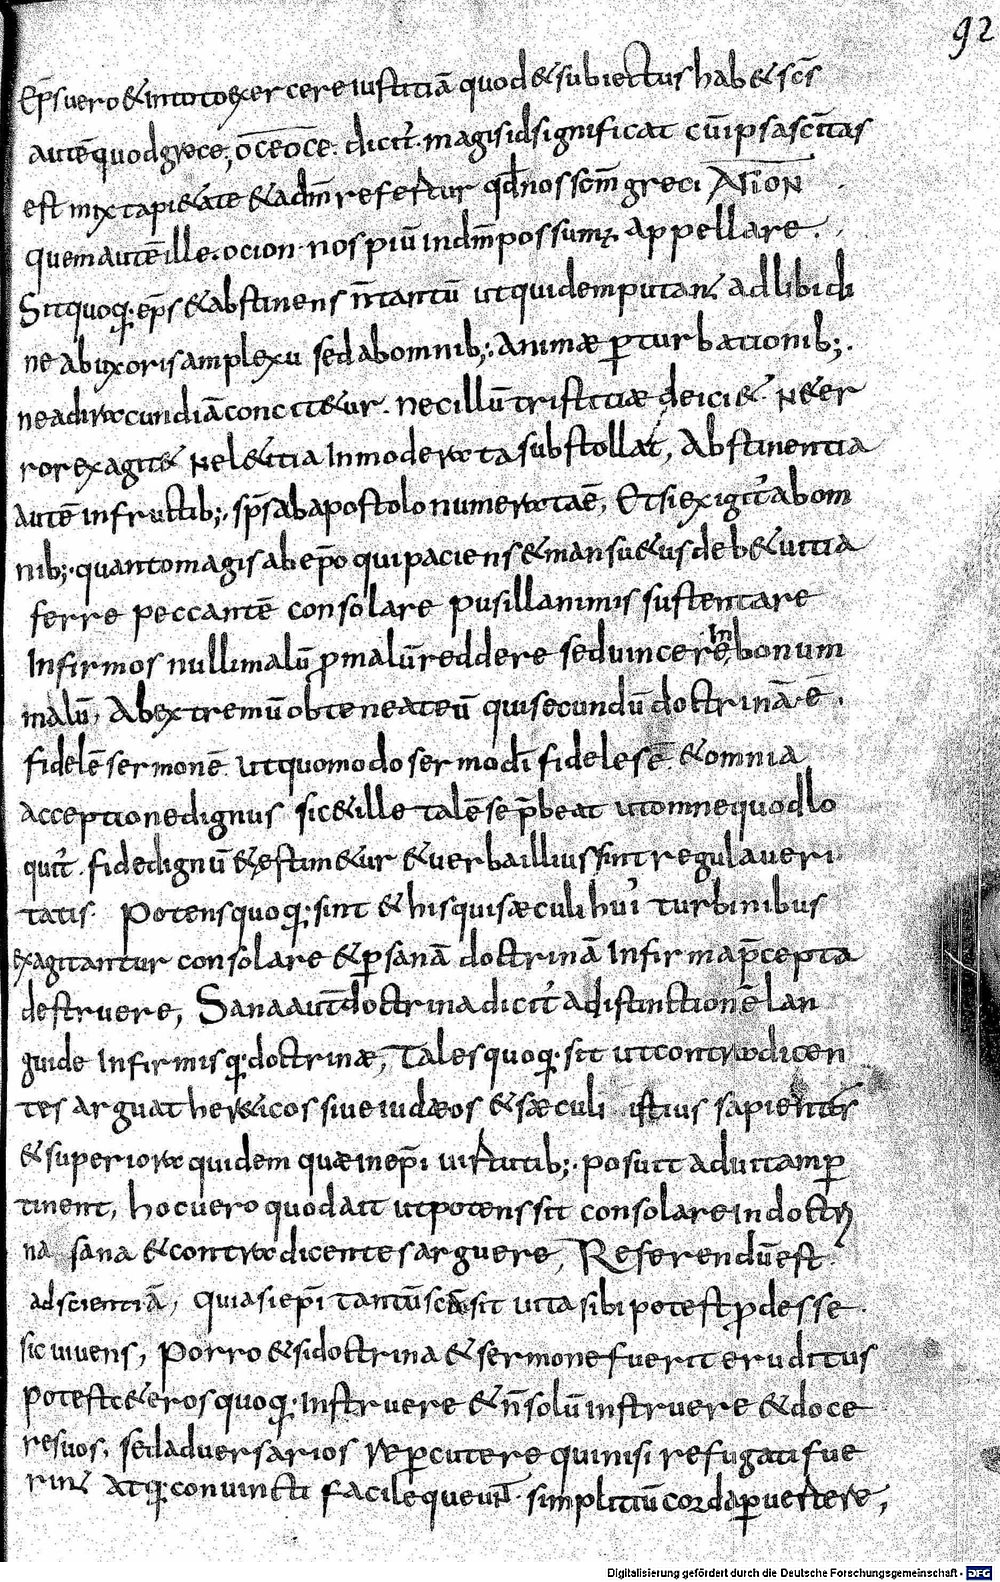 92
Ep̄s uero & in toto exercere iustitiā quod & subiectus hab& sc̄s
autē quod grece, OCEOCE. dicit᷑. magis id significat cū ipsa scītas
est mixta pi&ate & ad dm̄ refertur qd̄ nos scm̄ greci ATION
quem autē ille. ocion. nos piū in dm̄ possum; appellare.
Sit quoq; ep̄s & abstinens n̄ tantū ut quidem putan̄ ad libidi
ne ab uxoris amplexu sed ab omnib;. animæ ꝑturbationib;.
ne ad iracundiā concit&ur. nec illū tristitiæ deici&. Ne er
ror exagit& Nel&itia Inmoderata substollat, Abstinentia
autē in fructib;. sp̄s ab apostolo numerata ē, Et si exigit᷑ ab om
nib;. quanto magis ab ep̄o qui paciens & mansu&us deb& uitia
ferre peccantē consolare pusillanimis sustentare
Infirmos nulli malū ꝓ malū reddere sed uincere In bonum
malū, Ab extremū obteneat eū qui secundū doctrinā ē.
fidelē sermonē. ut quomodo sermo dī fideles ē & omnia
acceptione dignus sic & ille talē se p̄beat ut omne quod lo
quit᷑. fide dignū & estim&ur & uerba illius sint regula ueri
tatis. Potens quoq; sint & his qui sæculi hui᷒ turbinibus
exagitantur consolare & ꝑ sanā doctrinā Infirma p̄cepta
destruere, Sana aut̄ doctrina dicit᷑ a distinctionē lan
guide Infirmisq; doctrinæ, Tales quoq; sit ut contradicen
tes arguat her&icos siue iudæos & sæculi istius sapientes
& superiora quidem quæ in ep̄i uirtutib;. posuit ad uitam ꝑ
tinent, hoc uero quod ait ut potens sit consolare in doctri
na sana & contradicentes arguere, Referendū est
ad scientiā, quia si ep̄i tantū scā sit uita sibi potest ꝓdesse.
sic uiuens, Porro & si doctrina & sermone fuerit eruditus
potest c&eros quoq; Instruere & n̄ solū instruere & doce
re suos, sed aduersarios repcutere qui nisi refugati fue
rin̄ atq; conuincti facile queunt. simplitiū corda ꝑuertere,
Digitalisierung gefördert durch die Deutsche Forschungsgemeinschaft - DFG